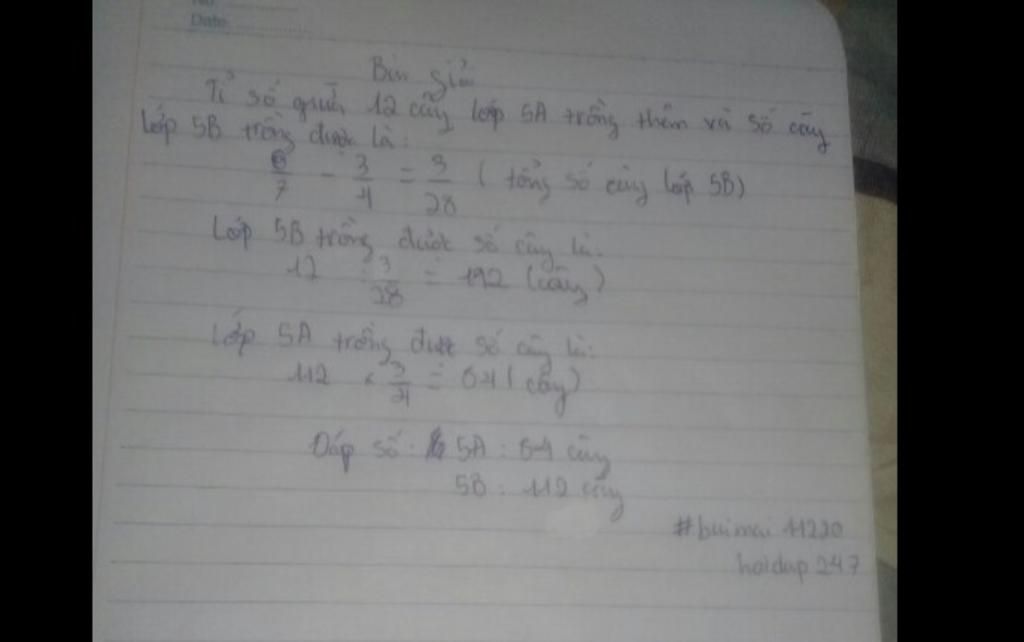 No.
Date
Bài giải
Tỉ số giữa 12 cây lớp 5A trồng thêm và số cây
lớp 5B trồng được là:
6/7 - 3/4 = 3/28 ( tổng số cây lớp 5B)
Lớp 5B trồng được số cây là:
12 : 3/28 = 112 (cây)
Lớp 5A trồng được số cây là:
112 × 3/4 = 84 ( cây)
Đáp số: 5A : 84 cây
5B : 112 cây
#buimai 11220
hoidap 247